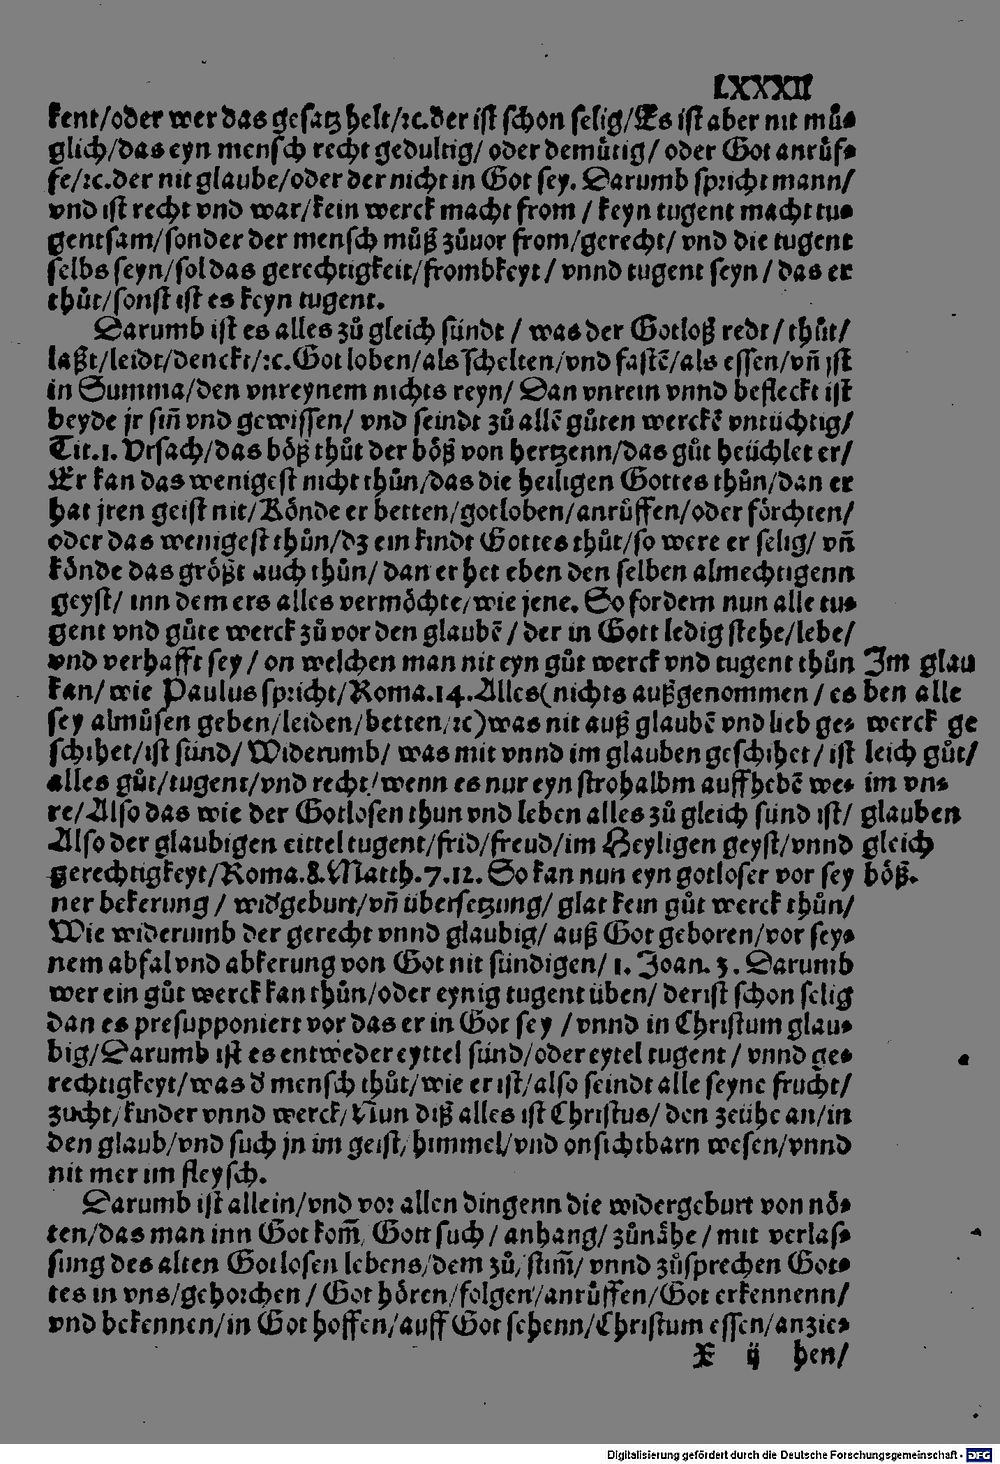 LXXXII
kent/oder wer das gesatz helt/ꝛc.der ist schon selig/Es ist aber nit mů-
glich/das eyn mensch recht gedultig/ oder demůtig/ oder Got anrůf-
fe/ꝛc.der nit glaube/oder der nicht in Got sey. Darumb spricht mann/
vnd ist recht vnd war/kein werck macht from / keyn tugent macht tu-
gentsam/sonder der mensch můß zůuor from/gerecht/ vnd die tugent
selbs seyn/sol das gerechtigkeit/frombkeyt/ vnnd tugent seyn / das er
thůt/sonst ist es keyn tugent.
Darumb ist es alles zů gleich sündt / was der Gotloß redt / thůt/
laßt/leidt/denckt/ꝛc.Got loben/als schelten/vnd fastē/als essen/vñ jst
in Summa/den vnreynem nichts reyn/ Dan vnrein vnnd befleckt ist
beyde jr siñ vnd gewissen/ vnd seindt zů allē gůten werckē vntüchtig/
Tit.1. Vrsach/das böß thůt der böß von hertzenn/das gůt heüchlet er/
Er kan das wenigest nicht thůn/das die heiligen Gottes thůn/dan er
hat jren geist nit/Könde er betten/gotloben/anrůffen/oder förchten/
oder das wenigest thůn/dz ein kindt Gottes thůt/so were er selig/ vñ
könde das größt auch thůn/ dan er het eben den selben almechtigenn
geyst/ inn dem ers alles vermöchte/wie jene. So fordern nun alle tu-
gent vnd gůte werck zů vor den glaubē / der in Gott ledig stehe/lebe/
vnd verhafft sey / on welchen man nit eyn gůt werck vnd tugent thůn
kan/ wie Paulus spricht/Roma.14.Alles(nichts außgenommen / es
sey almůsen geben/leiden/betten/ꝛc)was nit auß glaubē vnd lieb ge-
schihet/ist sünd/ Widerumb/ was mit vnnd im glauben geschihet / ist
alles gůt/tugent/vnd recht/wenn es nur eyn strohalbm auffhebē we-
re/Also das wie der Gotlosen thun vnd leben alles zů gleich sünd ist/
Also der glaubigen eittel tugent/frid/freud/im Heyligen geyst/vnnd
gerechtigkeyt/Roma.8.Matth.7.12. So kan nun eyn gotloser vor sey
ner bekerung / wid'geburt/vñ übersetzung/ glat kein gůt werck thůn/
Wie widerumb der gerecht vnnd glaubig/ auß Got geboren/vor sey-
nem abfal vnd abkerung von Got nit sündigen/ 1. Joan. 3. Darumb
wer ein gůt werck kan thůn/oder eynig tugent üben/ der ist schon selig
dan es presupponiert vor das er in Got sey / vnnd in Christum glau-
big/Darumb ist es entweder eyttel sünd/oder eytel tugent / vnnd ge-
rechtigkeyt/was d' mensch thůt/wie er ist/also seindt alle seyne frücht/
zucht/kinder vnnd werck/Nun diß alles ist Christus/ den zeühe an/in
den glaub/vnd such jn im geist/himmel/vnd onsichtbarn wesen/vnnd
nit mer im fleysch.
Darumb ist allein/vnd vor allen dingenn die widergeburt von nö-
ten/das man inn Got kom̃/ Gott such / anhang/ zůnåhe / mit verlas-
sung des alten Gotlosen lebens/dem zů/stim̃/ vnnd zůsprechen Got-
tes in vns/gehorchen / Got hören/folgen/anrůffen/Got erkennenn/
vnd bekennen/in Got hoffen/auff Got sehenn/Christum essen/anzie-
X ij hen/
Im glau
ben alle
werck ge
leich gůt/
im vn-
glauben
gleich
böß.
Digitalisierung gefördert durch die Deutsche Forschungsgemeinschaft - DFG